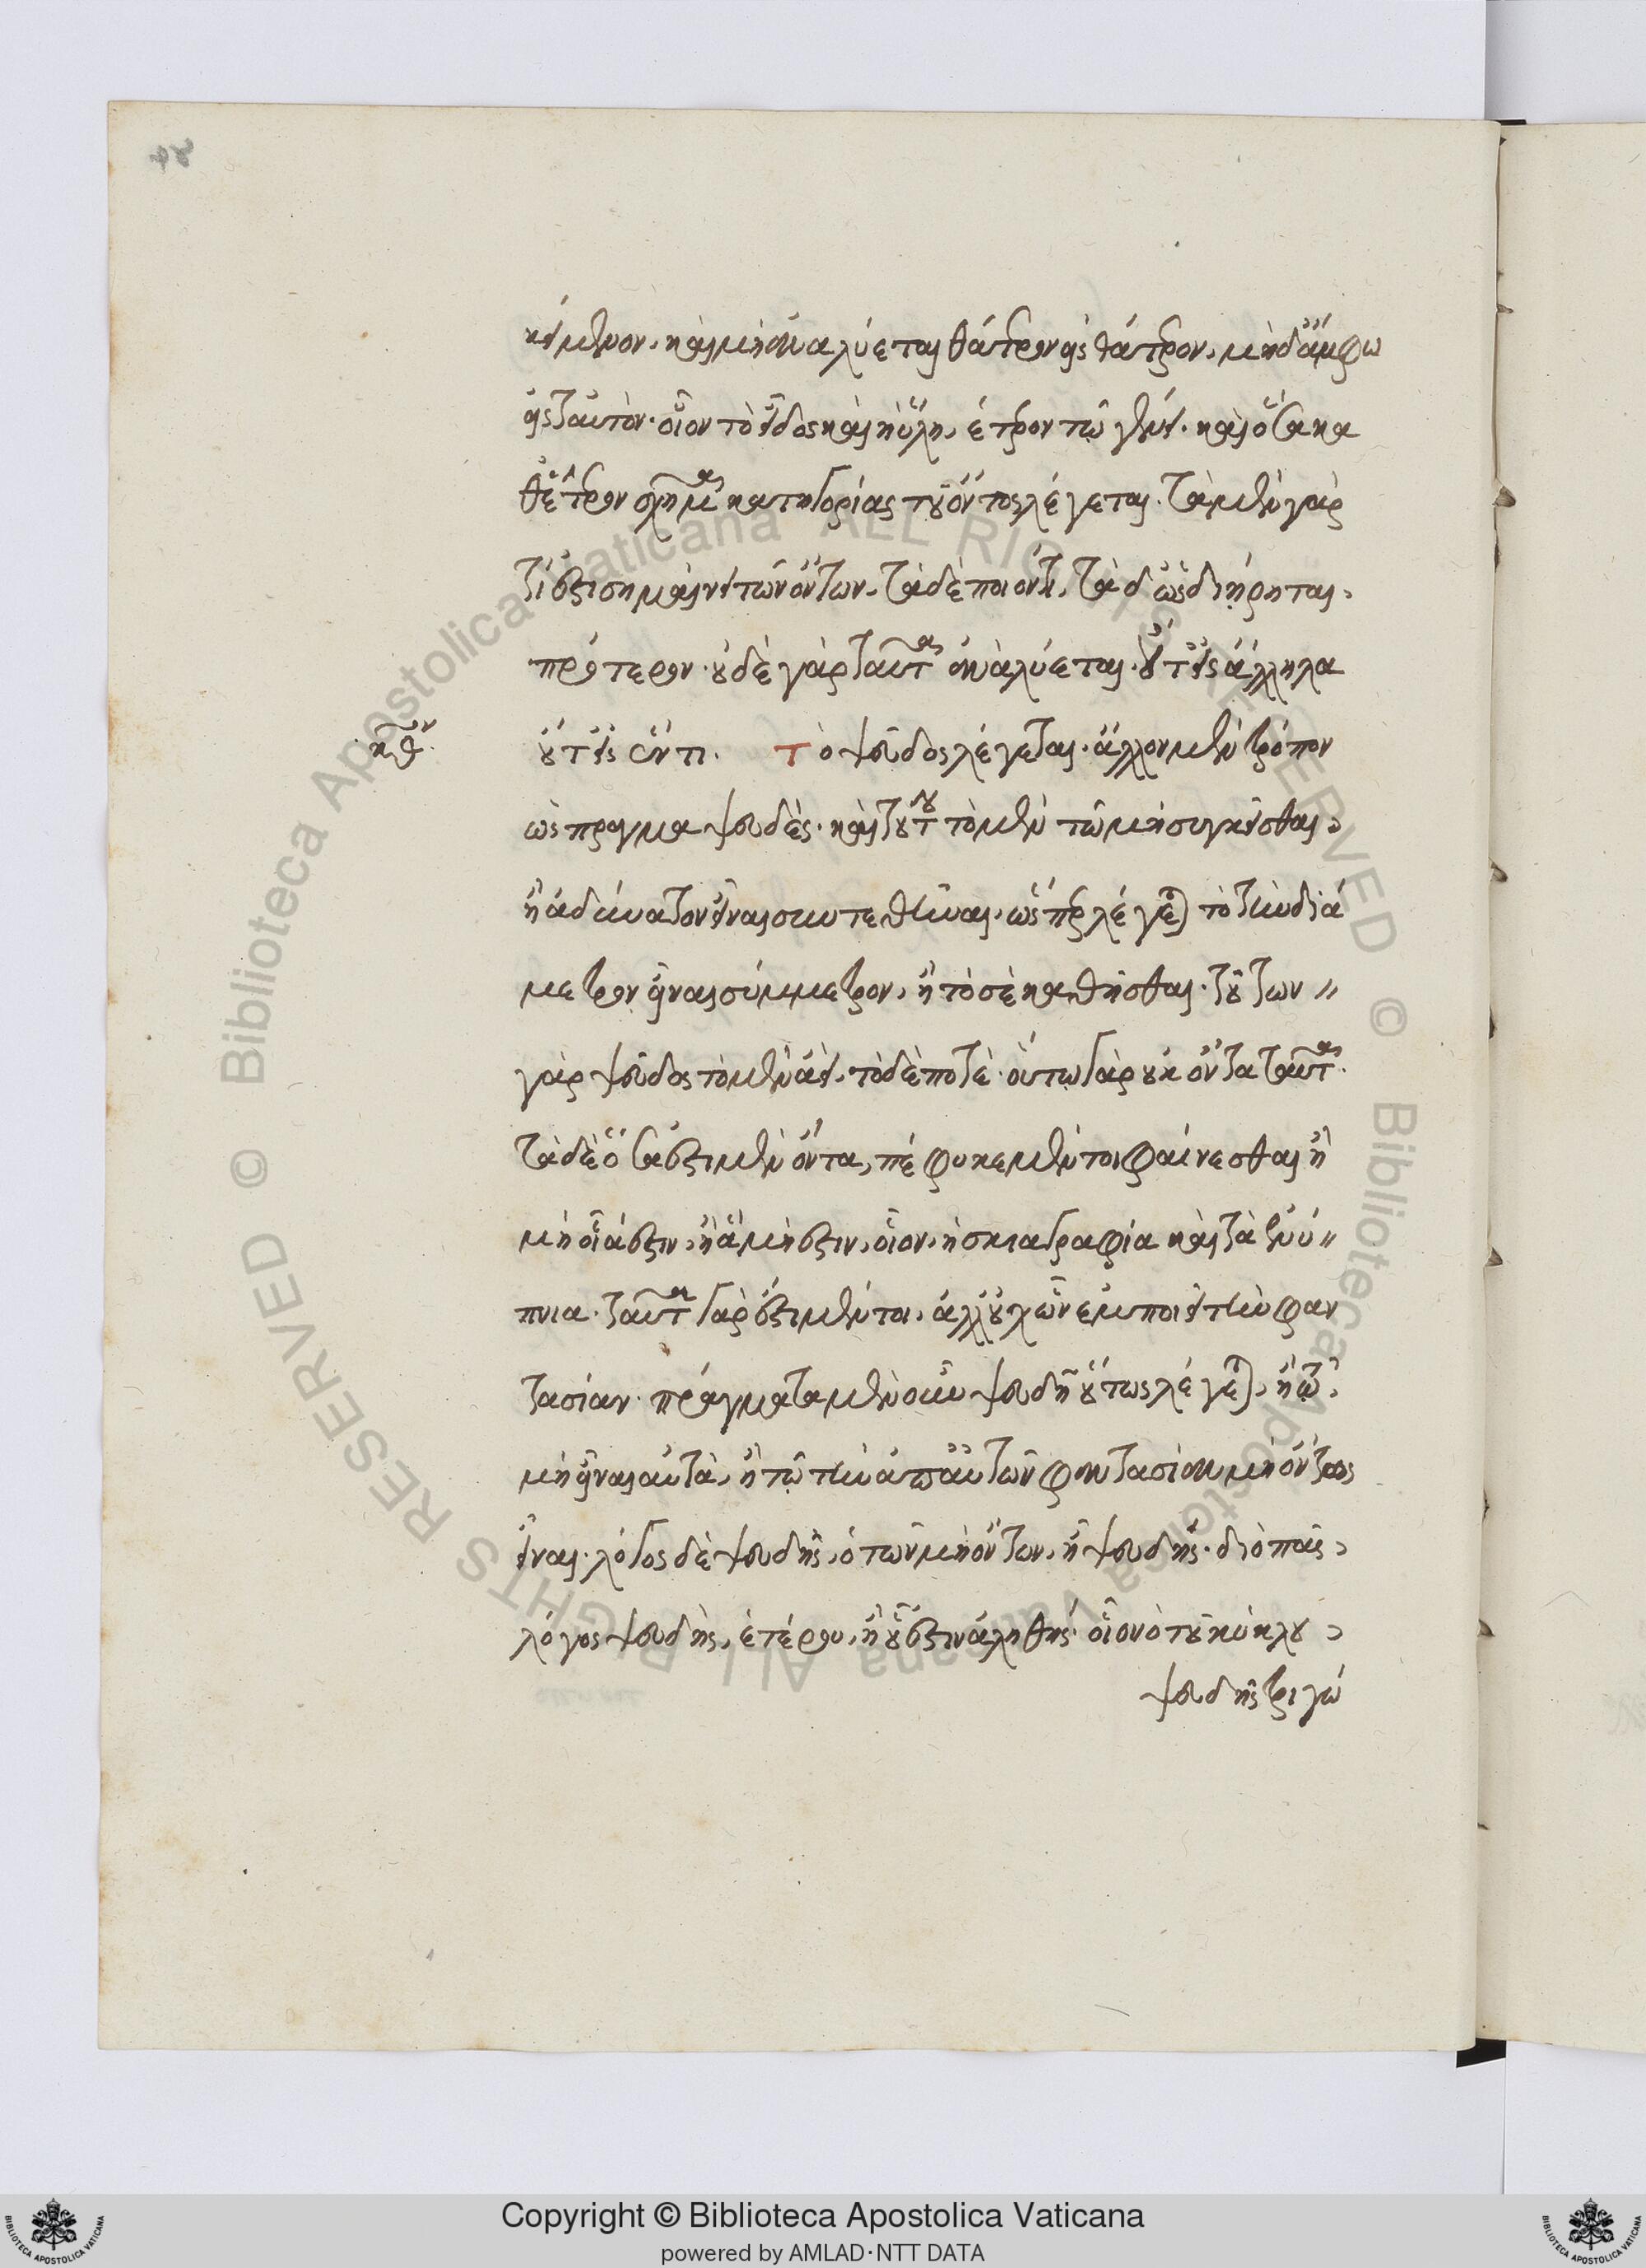 κείμενον. καὶ μὴ ἀναλύεται θάτερον εἰς θάτερον. μηδ' ἄμφω
εἰς ταυτόν. οἷον τὸ εἶδος καὶ ἡ ὕλη, ἕτερον τῷ γένει. καὶ ὅσα κα
θ' ἕτερον σχῆμα κατηγορίας τοῦ ὄντος λέγεται. τὰ μὲν γὰρ
τί ἐστι σημαίνει τῶν ὄντων. τὰ δὲ ποιόν τι. τὰ δ' ὡς διῄρηται
πρότερον. οὐδὲ γὰρ ταῦτα ἀναλύεται. οὔτ' εἰς ἄλληλα
οὔτ' εἰς ἕν τι. Τὸ ψεῦδος λέγεται. ἄλλον μὲν τρόπον
ὡς πραγμα ψευδές. καὶ τούτου τὸ μὲν τῷ μὴ συγκεῖσθαι
ἢ ἀδύνατον εἶναι συντεθῆναι. ὥσπερ λέγεται τὸ τὴν διά
μετρον εἶναι σύμμετρον. ἢ τὸ σὲ καθῆσθαι. τούτων
γὰρ ψεῦδος τὸ μὲν ἀεί. τὸ δὲ ποτέ. οὕτω γὰρ οὐκ ὄντα ταῦτα.
τὰ δὲ ὅσα ἐστι μὲν ὄντα, πέφυκε μέντοι φαίνεσθαι ἢ
μὴ οἷά ἐστιν. ἢ ἃ μὴ ἔστιν. οἷον. ἡ σκιαγραφία καὶ τὰ ἐνύ
πνια. ταῦτα γάρ ἐστι μέν τοι. ἀλλ' οὐχ ὧν ἐμποιεῖ τὴν φαν
τασίαν. πράγματα μὲν οὖν ψευδῆ οὕτως λέγεται. ἢ τῷ
μὴ εἶναι αὐτά. ἢ τῷ τὴν ἀπ' αὐτῶν φαντασίαν μὴ ὄντος
εἶναι. λόγος δὲ ψευδὴς. ὁ τῶν μὴ ὄντων. ᾗ ψευδής. διὸ πᾶς
λόγος ψευδὴς. ἑτέρου. ἢ οὗ ἐστιν ἀληθής. οἷον ὁ τοῦ κύκλου
ψευδὴς τριγώ